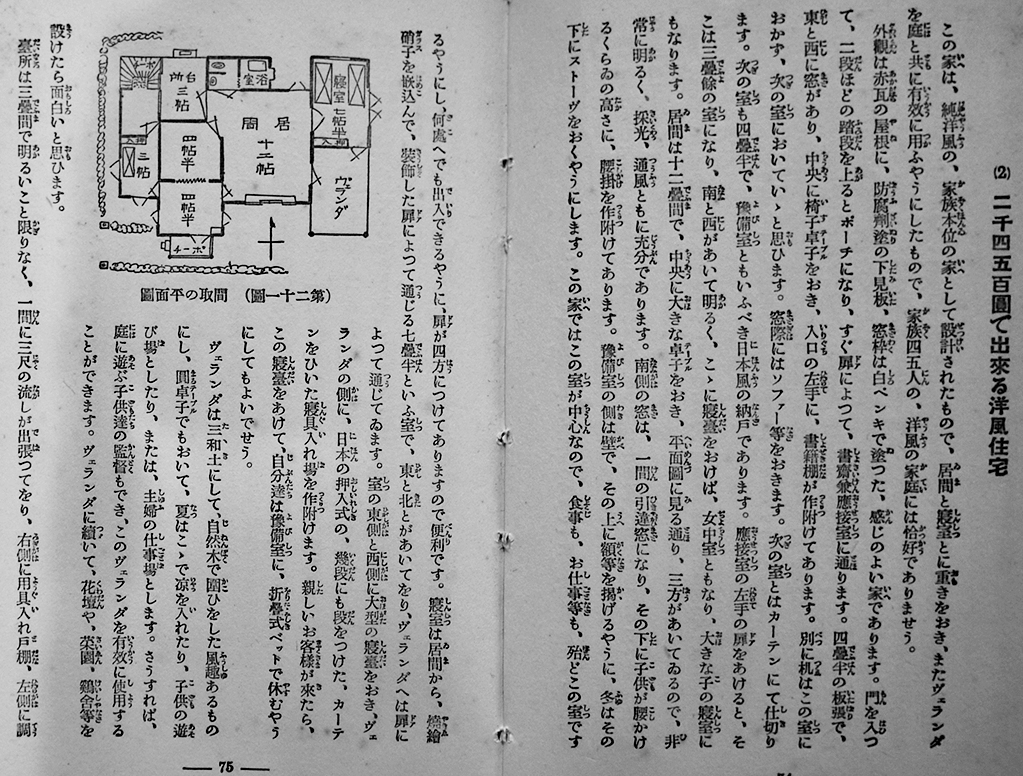 (2) 二千四五百圓で出來る洋風住宅
この家は、純洋風の、家族本位の家として設計されたもので、居間と寢室とに重きをおき、またヴェランダ
を庭と共に有效に用ふやうにしたもので、家族四五人の、洋風の家庭には恰好でありませう。
外觀は赤瓦の屋根に、防腐劑塗の下見板、窓枠は白ペンキで塗つた、感じのよい家であります。門を入つ
て、二段ほどの踏段を上るとポーチになり、すぐ扉によつて、書齋兼應接室に通ります。四疊半の板張で、
東と西に窓があり、中央に椅子卓子をおき、入口の左手に、書籍棚が作附けてあります。別に机はこの室に
おかず、次の室においていゝと思ひます。窓際にはソファー等をおきます。次の室とはカーテンにて仕切り
ます。次の室も四疊半で、豫備室ともいふべき日本風の納戸であります。應接室の左手の扉をあけると、そ
こは三疊餘の室になり、南と西があいて明るく、こゝに寢臺をおけば、女中室ともなり、大きな子の寢室に
もなります。居間は十二疊間で、中央に大きな卓子をおき、平面圖に見る通り、三方があいてゐるので、非
常に明るく、採光、通風ともに充分であります。南側の窓は、一間の引違窓になり、その下に子供が腰かけ
るくらゐの高さに、腰掛を作附けてあります。豫備室の側は壁で、その上に額等を揭げるやうに、冬はその
下にストーヴをおくやうにします。この家ではこの室が中心なので、食事も、お仕事等も、殆どこの室です
るやうにし、何處へでも出入できるやうに、扉が四方につけてありますので便利です。寢室は居間から、燒繪
硝子を嵌込んで、裝飾した扉によつて通じる七疊半といふ室で、東と北とがあいてをり、ヴェランダへは扉に
よつて通じてゐます。室の東側と西側に大型の寢臺をおき、ヴェ
ランダの側に、日本の押入式の、幾段にも段をつけた、カーテ
ンをひいた寢具入れ場を作附けます。親しいお客樣が來たら、
この寢臺をあけて、自分達は豫備室に、折疊式ベットで休むやう
にしてもよいでせう。
ヴェランダは三和土にして、自然木で圍ひをした風趣あるもの
にし、圓卓子でもおいて、夏はこゝで凉を入れたり、子供の遊
び場としたり、または、主婦の仕事場とします。さうすれば、
庭に遊ぶ子供達の監督もでき、このヴェランダを有效に使用する
ことができます。ヴェランダに續いて、花壇や、菜園、鷄舍等を
設けたら面白いと思ひます。
臺所は三疊間で明るいこと限りなく、一間に三尺の流しが出張つてをり、右側に用具入れ戸棚、左側に調
台所
三帖
浴室
寢室七帖半
入押
居間
十二帖
ヴェランダ
四帖半
四帖半
入押
三帖
ポーチ
(第二十一圖) 間取の平面圖
— 75 —